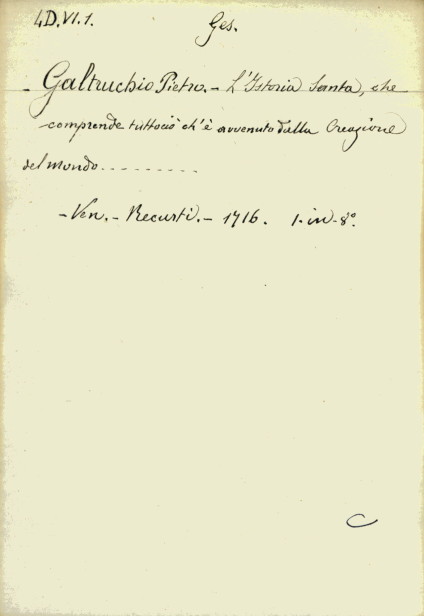 4D.VI.1.
Ges.
- Galtruchio Pietro. - L'Istoria Santa, che
comprende tuttociò ch'è avvenuto dalla Creazione
del mondo..........
- Ven. - Recurti. - 1716. 1. in-8º.
C